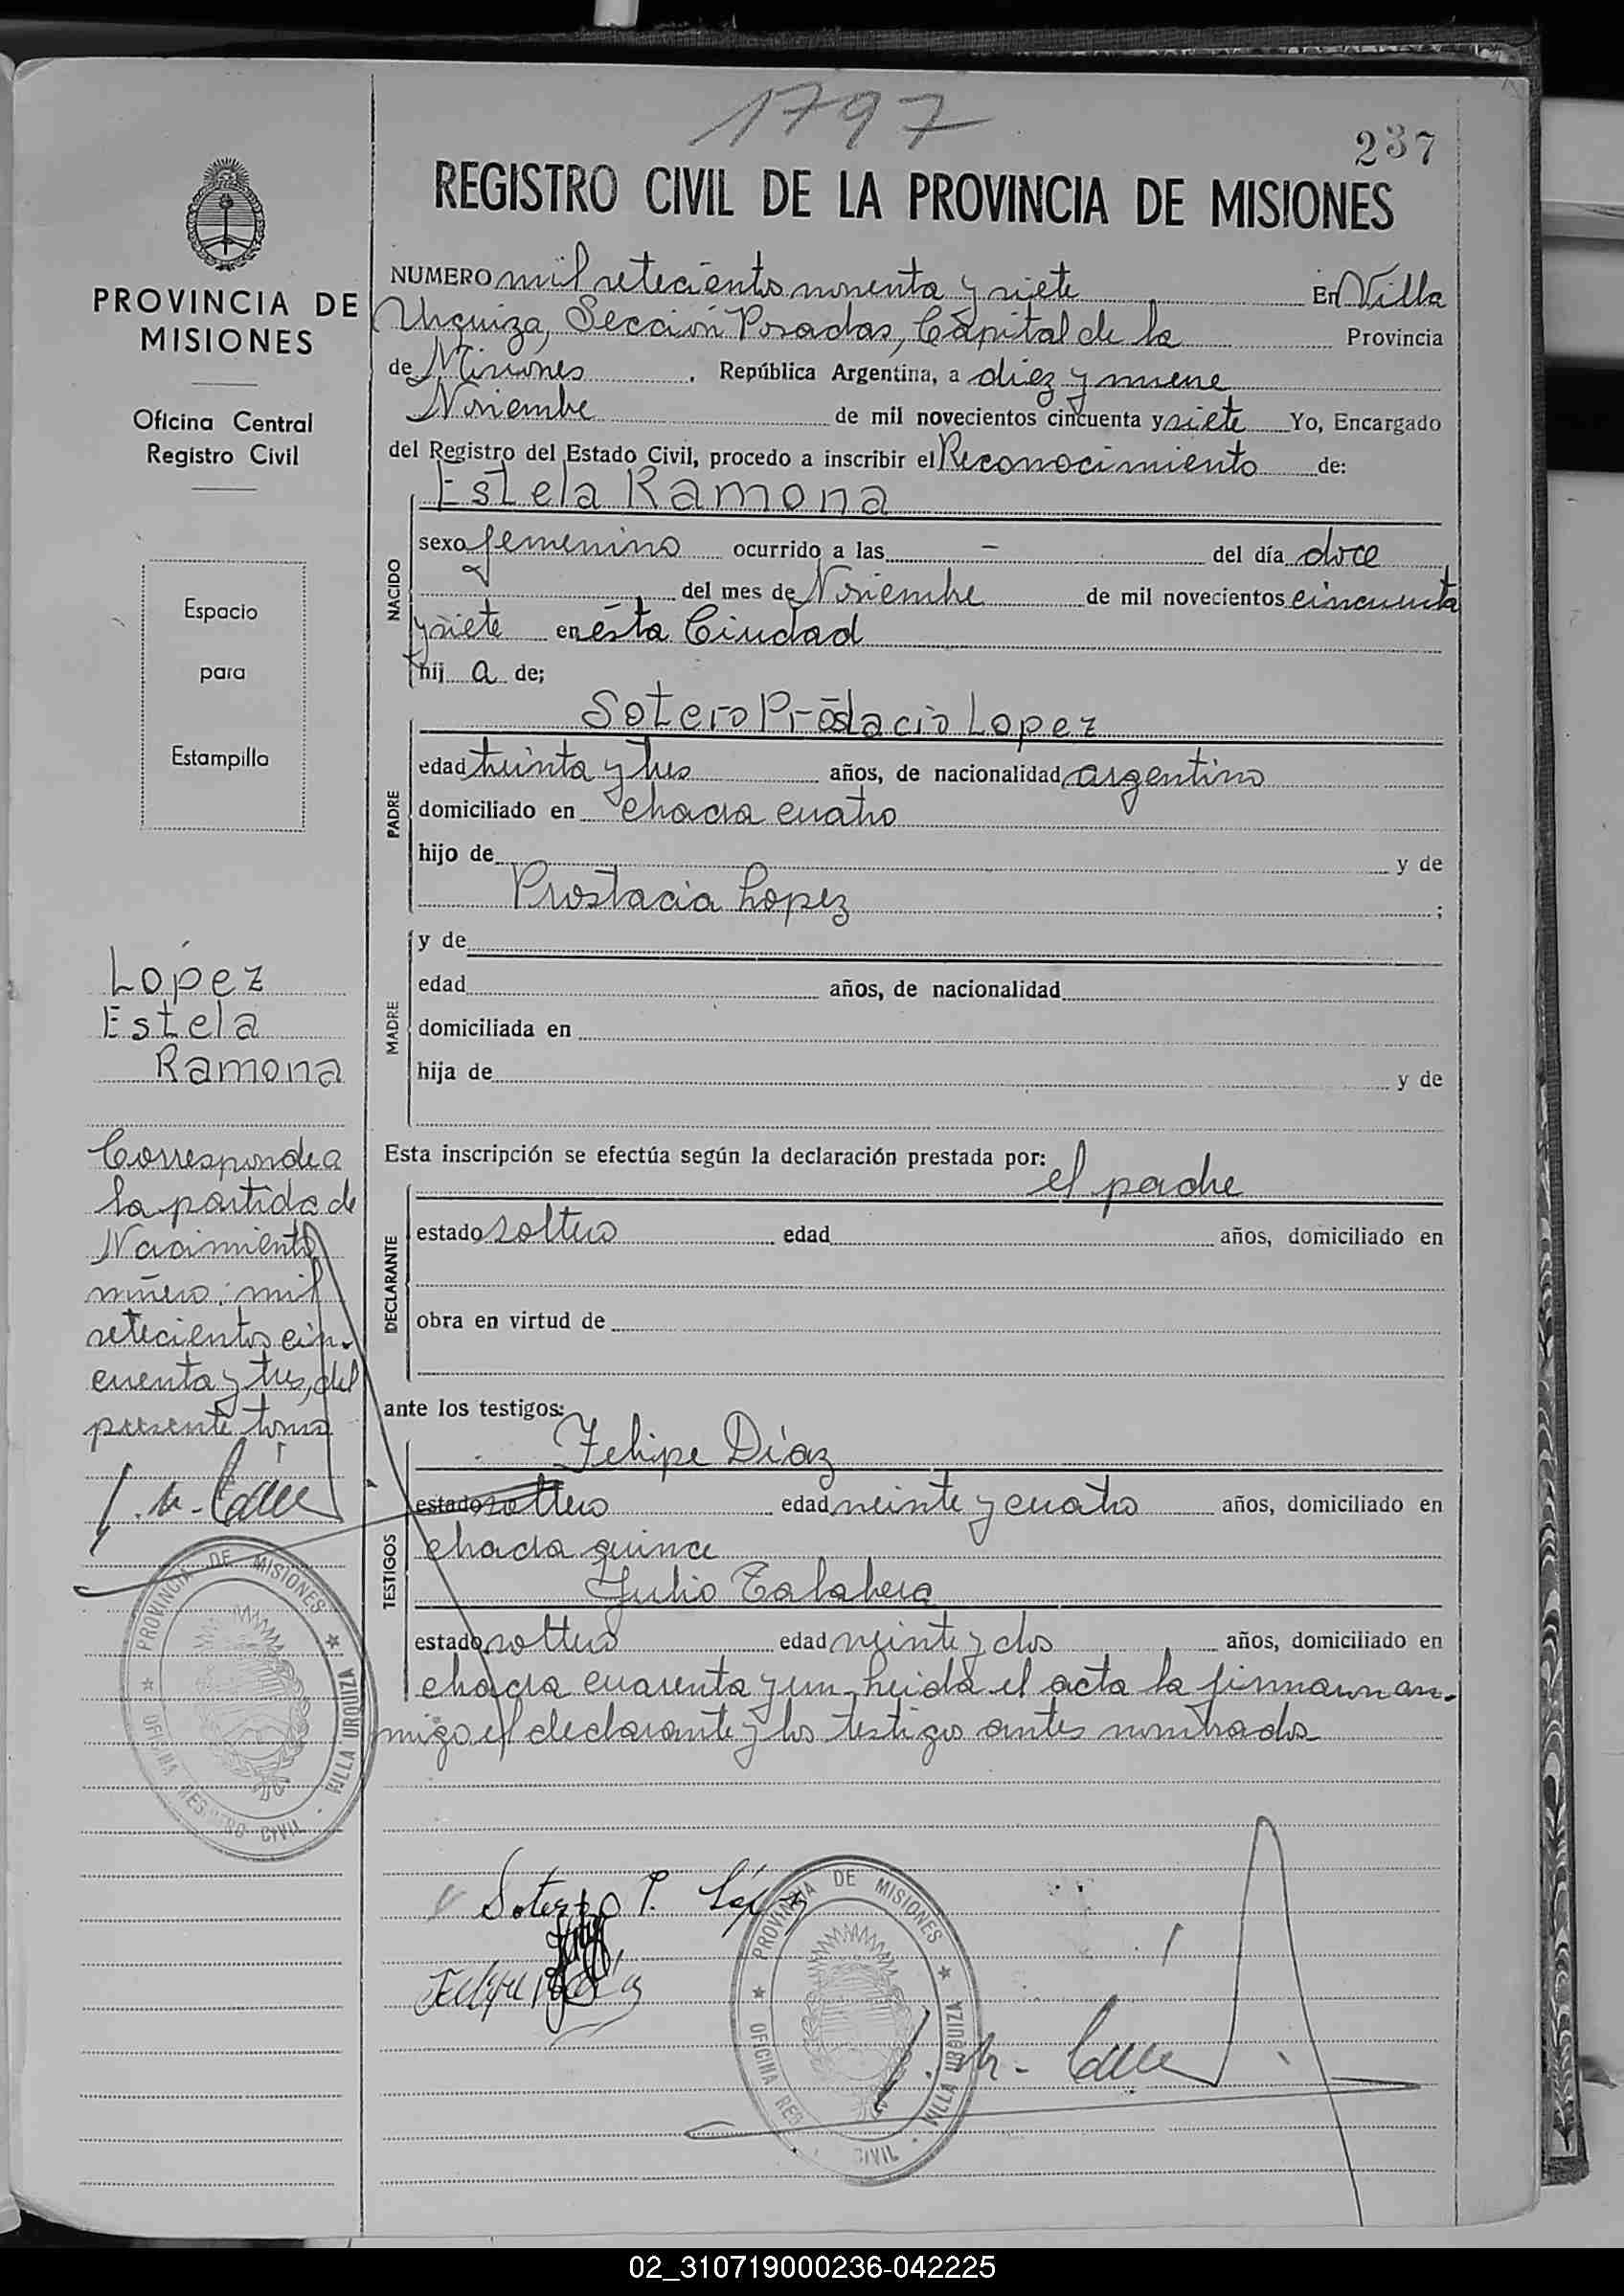 1797
237
REGISTRO CIVIL DE LA PROVINCIA DE MISIONES
PROVINCIA DE
MISIONES
Oficina Central
Registro Civil
Espacio
para
Estampilla
Lopez
Estela
Ramona
Corresponde a
la partida de
Nacimiento
número: mil
setecientos cin-
cuenta y tres, del
presente tomo
PROVINCIA DE MISIONES ★ VILLA URQUIZA • OFICINA REGISTRO CIVIL ★
NUMERO mil setecientos noventa y siete En Villa
Urquiza, Sección Posadas, Capital de la Provincia
de Misiones, República Argentina, a diez y nueve
Noviembre de mil novecientos cincuenta y siete Yo, Encargado
del Registro del Estado Civil, procedo a inscribir el Reconocimiento de:
Estela Ramona
NACIDO
sexo femenino ocurrido a las - del día doce
del mes de Noviembre de mil novecientos cincuenta
y siete en ésta Ciudad
hij a de;
Sotero Prōslacio Lopez
PADRE
edad treinta y tres años, de nacionalidad argentino
domiciliado en chacra cuatro
hijo de y de
Prostacia Lopez ;
MADRE
y de
edad años, de nacionalidad
domiciliada en
hija de y de
Esta inscripción se efectúa según la declaración prestada por:
el padre
DECLARANTE
estado soltero edad años, domiciliado en
obra en virtud de
ante los testigos:
Felipe Díaz
TESTIGOS
estado soltero edad veinte y cuatro años, domiciliado en
chacra quince
Julio Talabera
estado soltero edad veinte y dos años, domiciliado en
chacra cuarenta y un leída el acta la firmaron con-
migo el declarante y los testigos antes nombrados
Sotero P. López
Felipe Díaz
PROVINCIA DE MISIONES ★ VILLA URQUIZA • CIVIL OFICINA REG ★
02_310719000236-042225